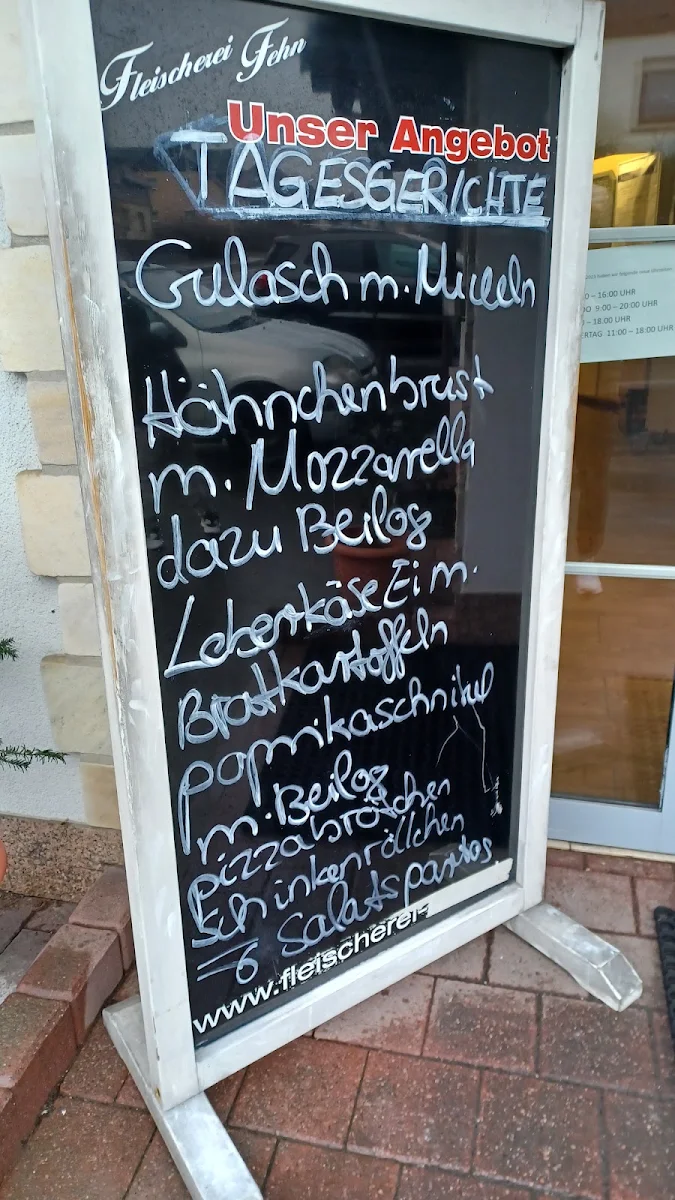 Fleischerei Fehn
Unser Angebot
TAGESGERICHTE
Gulasch m. Nudeln
Hähnchenbrust
m. Mozzarella
dazu Beilag
Leberkäse Ei m.
Bratkartoffeln
paprikaschnitzel
m. Beilag
pizzabrötchen
Schinkenröllchen
Salat
www.fleischerei-
– 16:00 UHR
DO 9:00 – 20:00 UHR
– 18:00 UHR
ERTAG 11:00 – 18:00 UHR